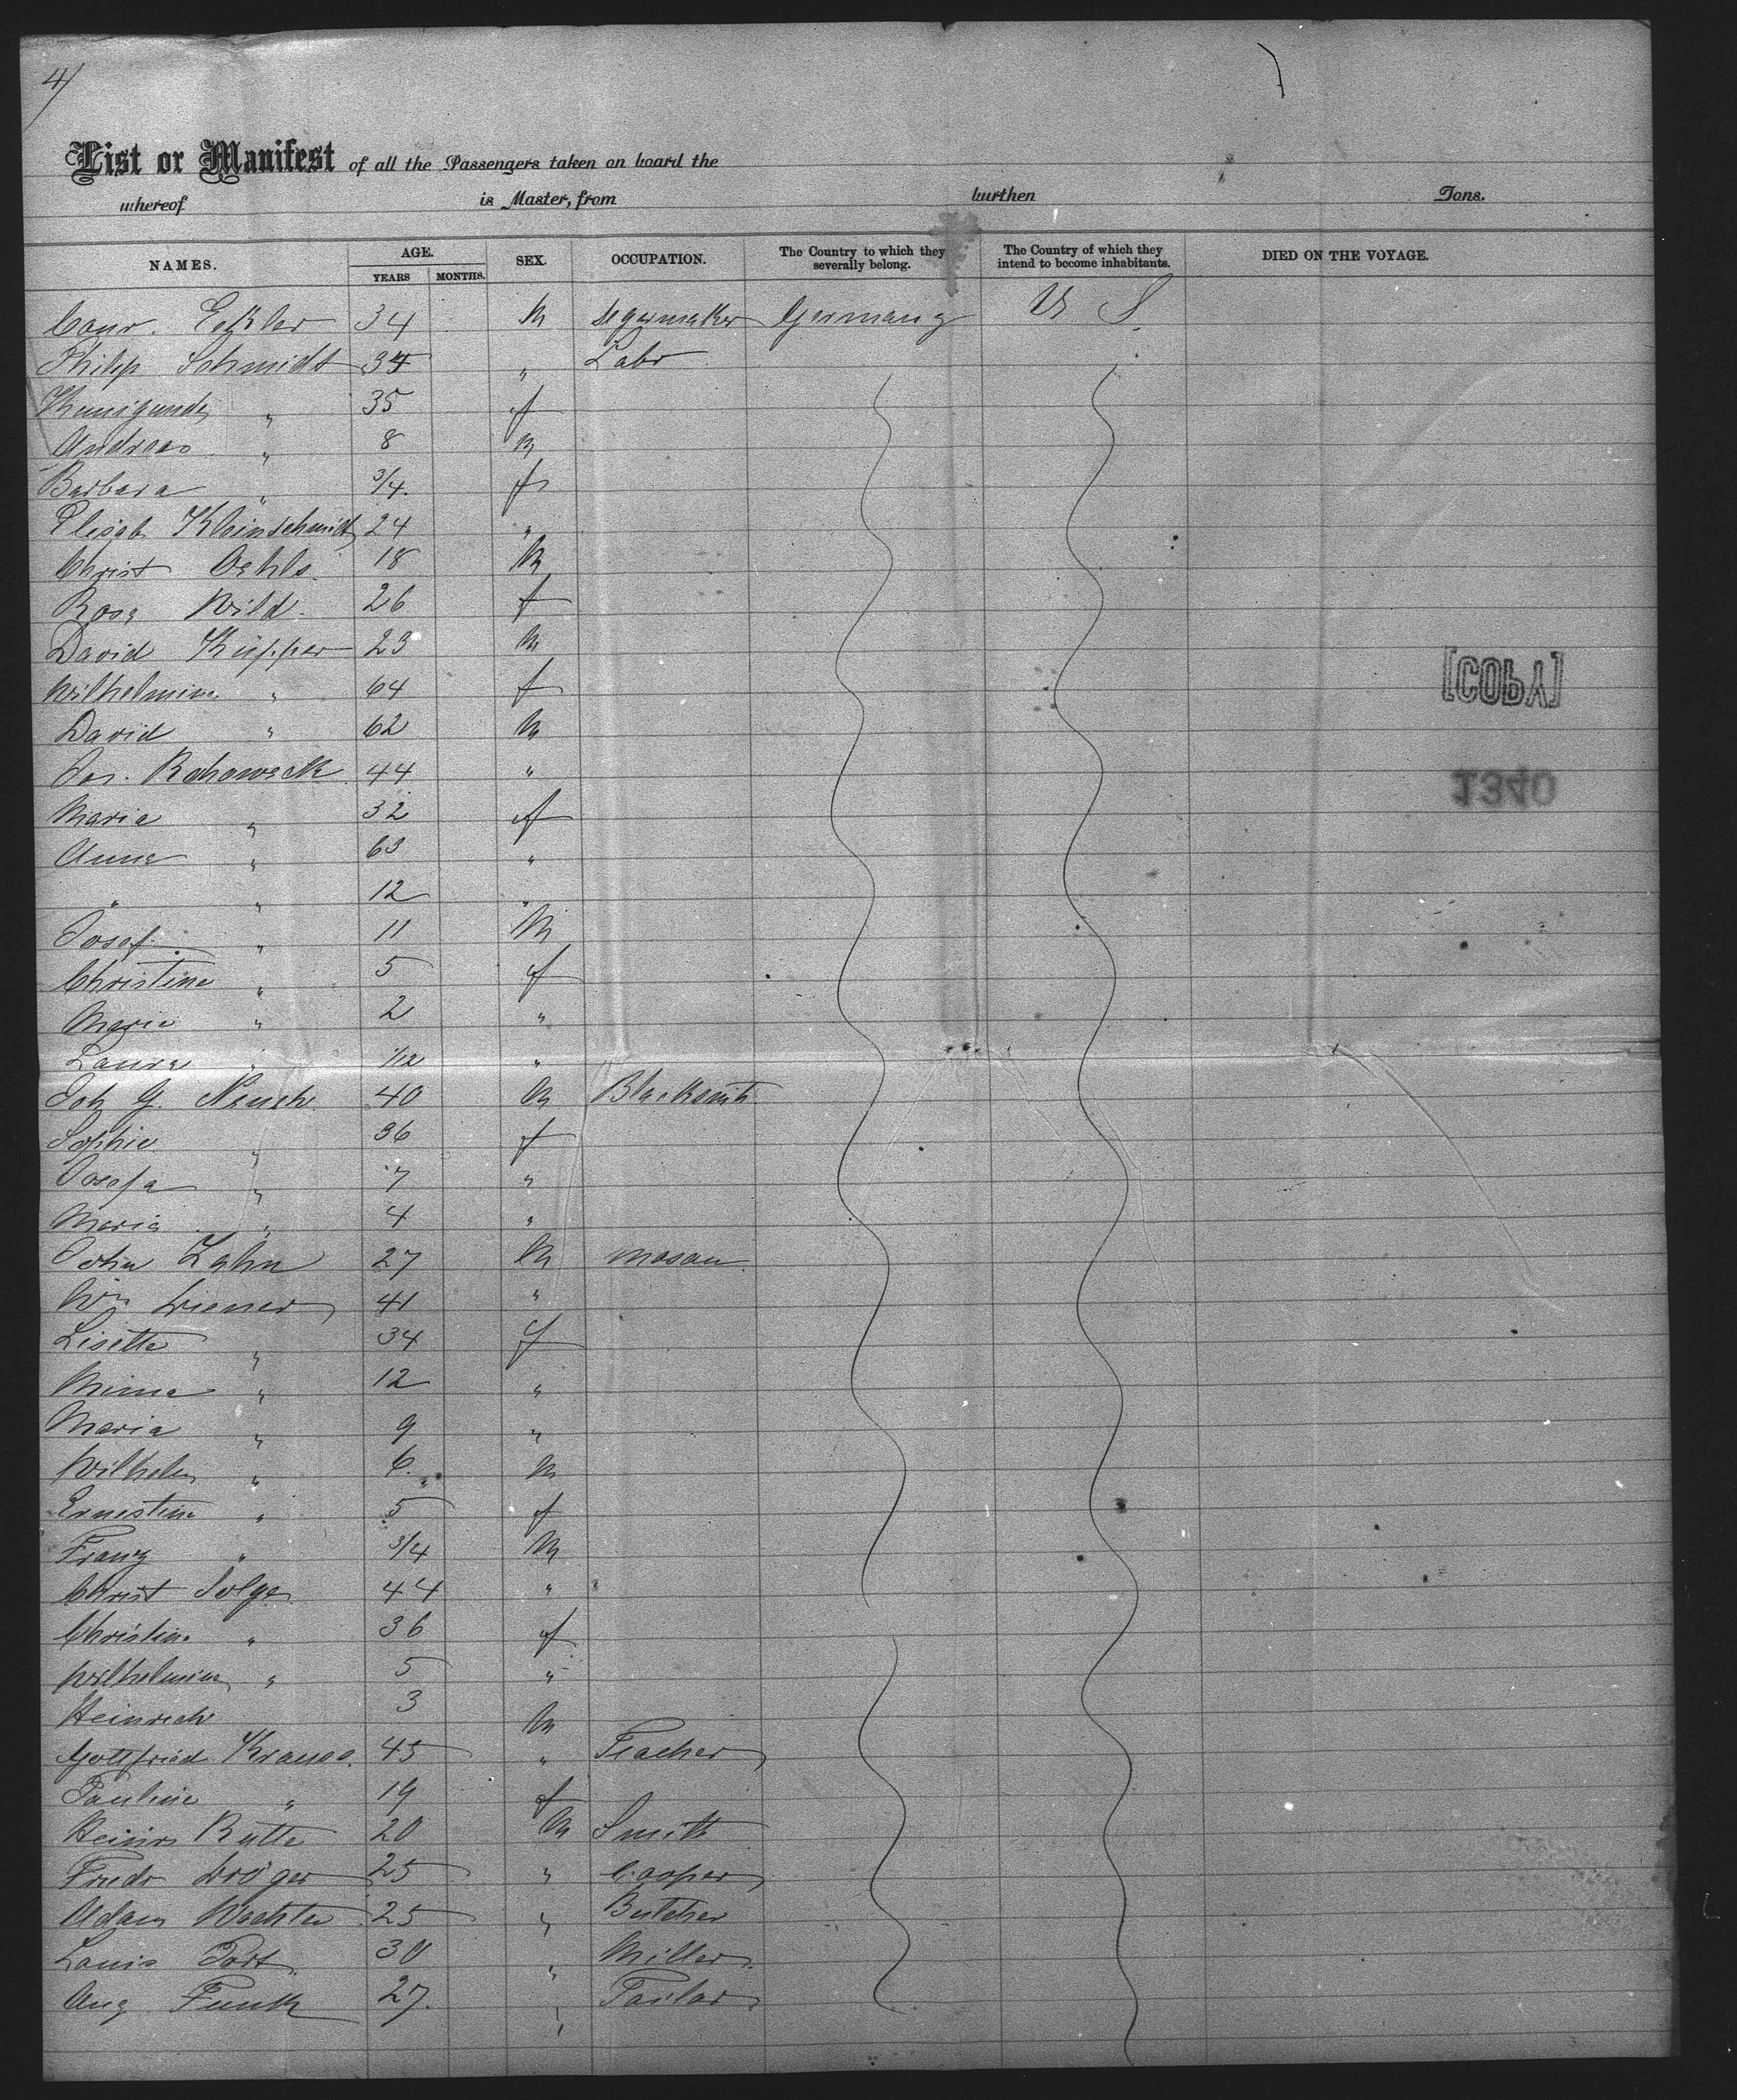 4/
List or Manifest of all the Passengers taken on board the
whereof is Master, from burthen Tons.
NAMES. AGE. YEARS MONTHS. SEX. OCCUPATION. The Country to which they severally belong. The Country of which they intend to become inhabitants. DIED ON THE VOYAGE.
Conr. 34 M Segarmaker Germany U S
Philip Schmidt 34 " Labr
Kunigunde " 35 f
Andreas " 8 M
Barbara " 3/4. f
Elisab Kleinschmidt 24 "
Christ Oehls 18 M
Rosa Wild. 26 f
David Küpper 23 M
Wilhelmine " 64 f
David " 62 M
Jos. 44 "
Maria " 32 f
Anna " 63 "
" " 12 "
Josef " 11 M
Christine " 5 f
Marie " 2 "
Laura " 1/12 "
Joh G. 40 M Blacksmith
Sophie " 36 f
Josefa " 7 "
Maria " 4 "
John Zahn 27 M Mason
Wm 41 "
Lisette " 34 f
Minna " 12 "
Maria " 9 "
Wilhelm " 6. M
Ernestine " 5 f
Franz " 3/4 M
Christ Solge 44 "
Christine " 36 f
Wilhelmine " 5 "
Heinrich 3 M
Gottfried Krause. 45 " Teacher
Pauline " 19 f
Heinr Rutte 20 M Smith
Friedr Dröger 25 " Cooper
Adam Wachter 25 " Butcher
Louis Port 30 " Miller
Aug Funk 27. " Tailor
[COPY]
1340